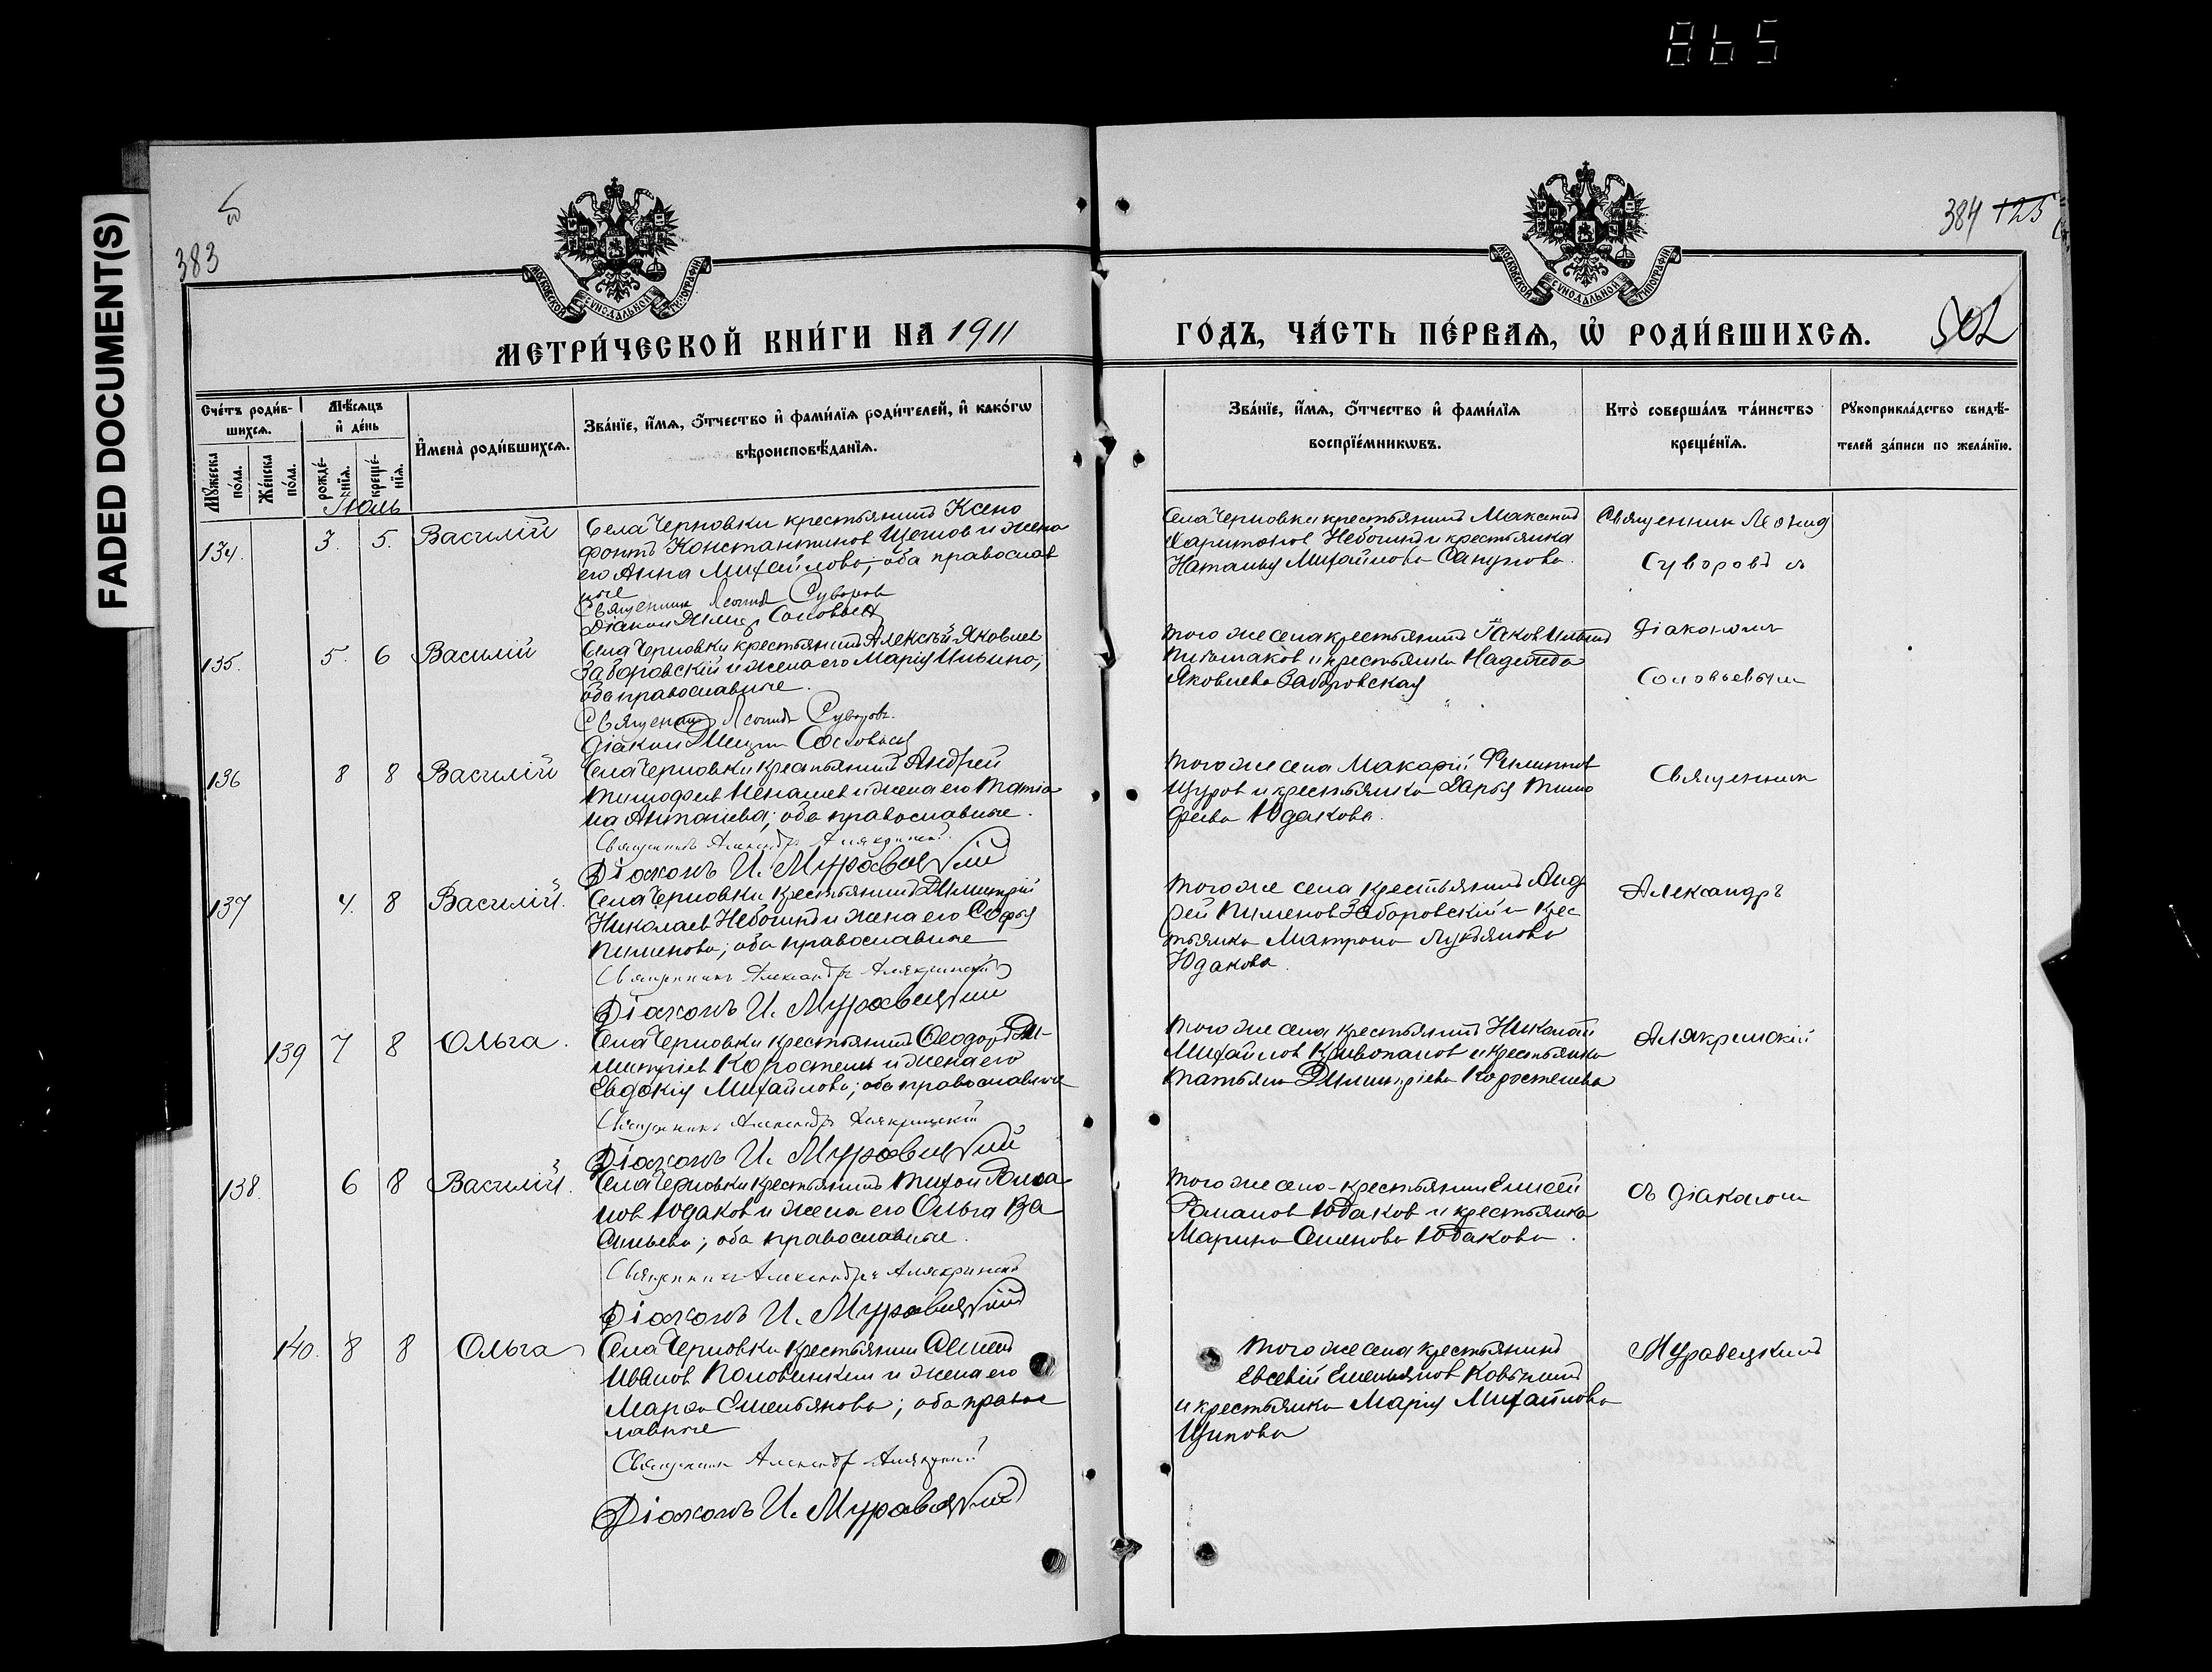 865
FADED DOCUMENT(S)
383
384 125
502
МОСКОВСКОЙ СѴНОДАЛЬНОЙ ТИПОГРАФІИ
МОСКОВСКОЙ СѴНОДАЛЬНОЙ ТИПОГРАФІИ
МЕТРИ́ЧЕСКОЙ КНИ́ГИ НА 1911
ГО́ДЪ, ЧА́СТЬ ПЕ́РВАѦ, Ѡ҆ РОДИ́ВШИХСѦ.
Сче́тъ роди́в-
шихсѧ.
Мꙋ́жеска по́ла.
Же́нска по́ла.
Мѣ́сѧцъ и҆ де́нь
рожде́-нїѧ.
креще́-нїѧ.
И҆мена̀ роди́вшихсѧ.
Зва́нїе, и҆́мѧ, ѻ҆́тчество и҆ фами́лїѧ роди́телей, и҆ како́гѡ
вѣроисповѣ́данїѧ.
Зва́нїе, и҆́мѧ, ѻ҆́тчество и҆ фами́лїѧ
воспрїе́мникѡвъ.
Кто̀ соверша́лъ та́инство
креще́нїѧ.
Рꙋкоприкла́дство свидѣ́-
телей за́писи по жела́нїю.
Іюль
134. 3. 5. Василій
Села Черновки крестьянинъ Ксено
фонтъ Константинов и жена
его Анна Михайлова; оба православ
ные
Священник Леонид Суворов
Діакон Соловьев
Села Черновки крестьянинъ Максимъ
Харитонов Небогинъ и крестьянка
Наталья Михайлова Сапунова.
Священник Леонид
Суворовъ съ
135. 5. 6 Василій
Села Черновки крестьянинъ Алексѣй Яковлев
Заборовскій и жена его Марія Ильина;
оба православные.
Священник Леонид Суворовъ.
Діакон Соловьев
того же села крестьянинъ Іаков Ильинъ
и крестьянка Надежда
Яковлева Заборовская
Діакономъ
Соловьевым
136 8 8 Василій
Села Черновки крестьянинъ Андрей
Тимофеев Ненашев и жена его Татіа
на; оба православные.
Священникъ Александръ Алякринскій
Діаконъ И. Муравецкій
того же села Макарій Филиппов
Щуров и крестьянка Дарья Тимо
феева Юдакова.
Священник
137 4. 8 Василій.
Села Черновки крестьянинъ Димитрій
Николаев Небогинъ и жена его Софья
Пименова; оба православные
Священникъ Александръ Алякринскій
Діаконъ И. Муравецкій
того же села крестьянинъ Анд
рей Пименов Заборовскій и крес
тьянка Матрона Лукьянова
Юдакова.
Александръ
139 7 8 Ольга.
Села Черновки крестьянинъ Ѳеодор Ди-
митріев Коростелев и жена его
Евдокія Михайлова; оба православные
Священникъ Александръ Алякринскій
Діаконъ И. Муравецкій
того же села крестьянинъ Николай
Михайлов Кривопалов и крестьянка
Татьяна Димитріева Коростелева
Алякринскій
138. 6 8 Василій.
Села Черновки крестьянинъ Тихон Рома
нов Юдаков и жена его Ольга Ва
сильева; оба православные.
Священникъ Александръ Алякринскій
Діаконъ И. Муравецкій
того же села крестьянин Елисей
Романов Юдаков и крестьянка
Марина Семенова Юдакова.
съ діаконом
140. 8 8 Ольга
Села Черновки крестьянин Семен
Иванов Половинкин и жена его
Марѳа Емельянова; оба правос
лавные
Священник Александр Алякринскій
Діаконъ И. Муравецкій
того же села крестьянинъ
Евсевій Емельянов
и крестьянка Марія Михайлова
Муравецкий